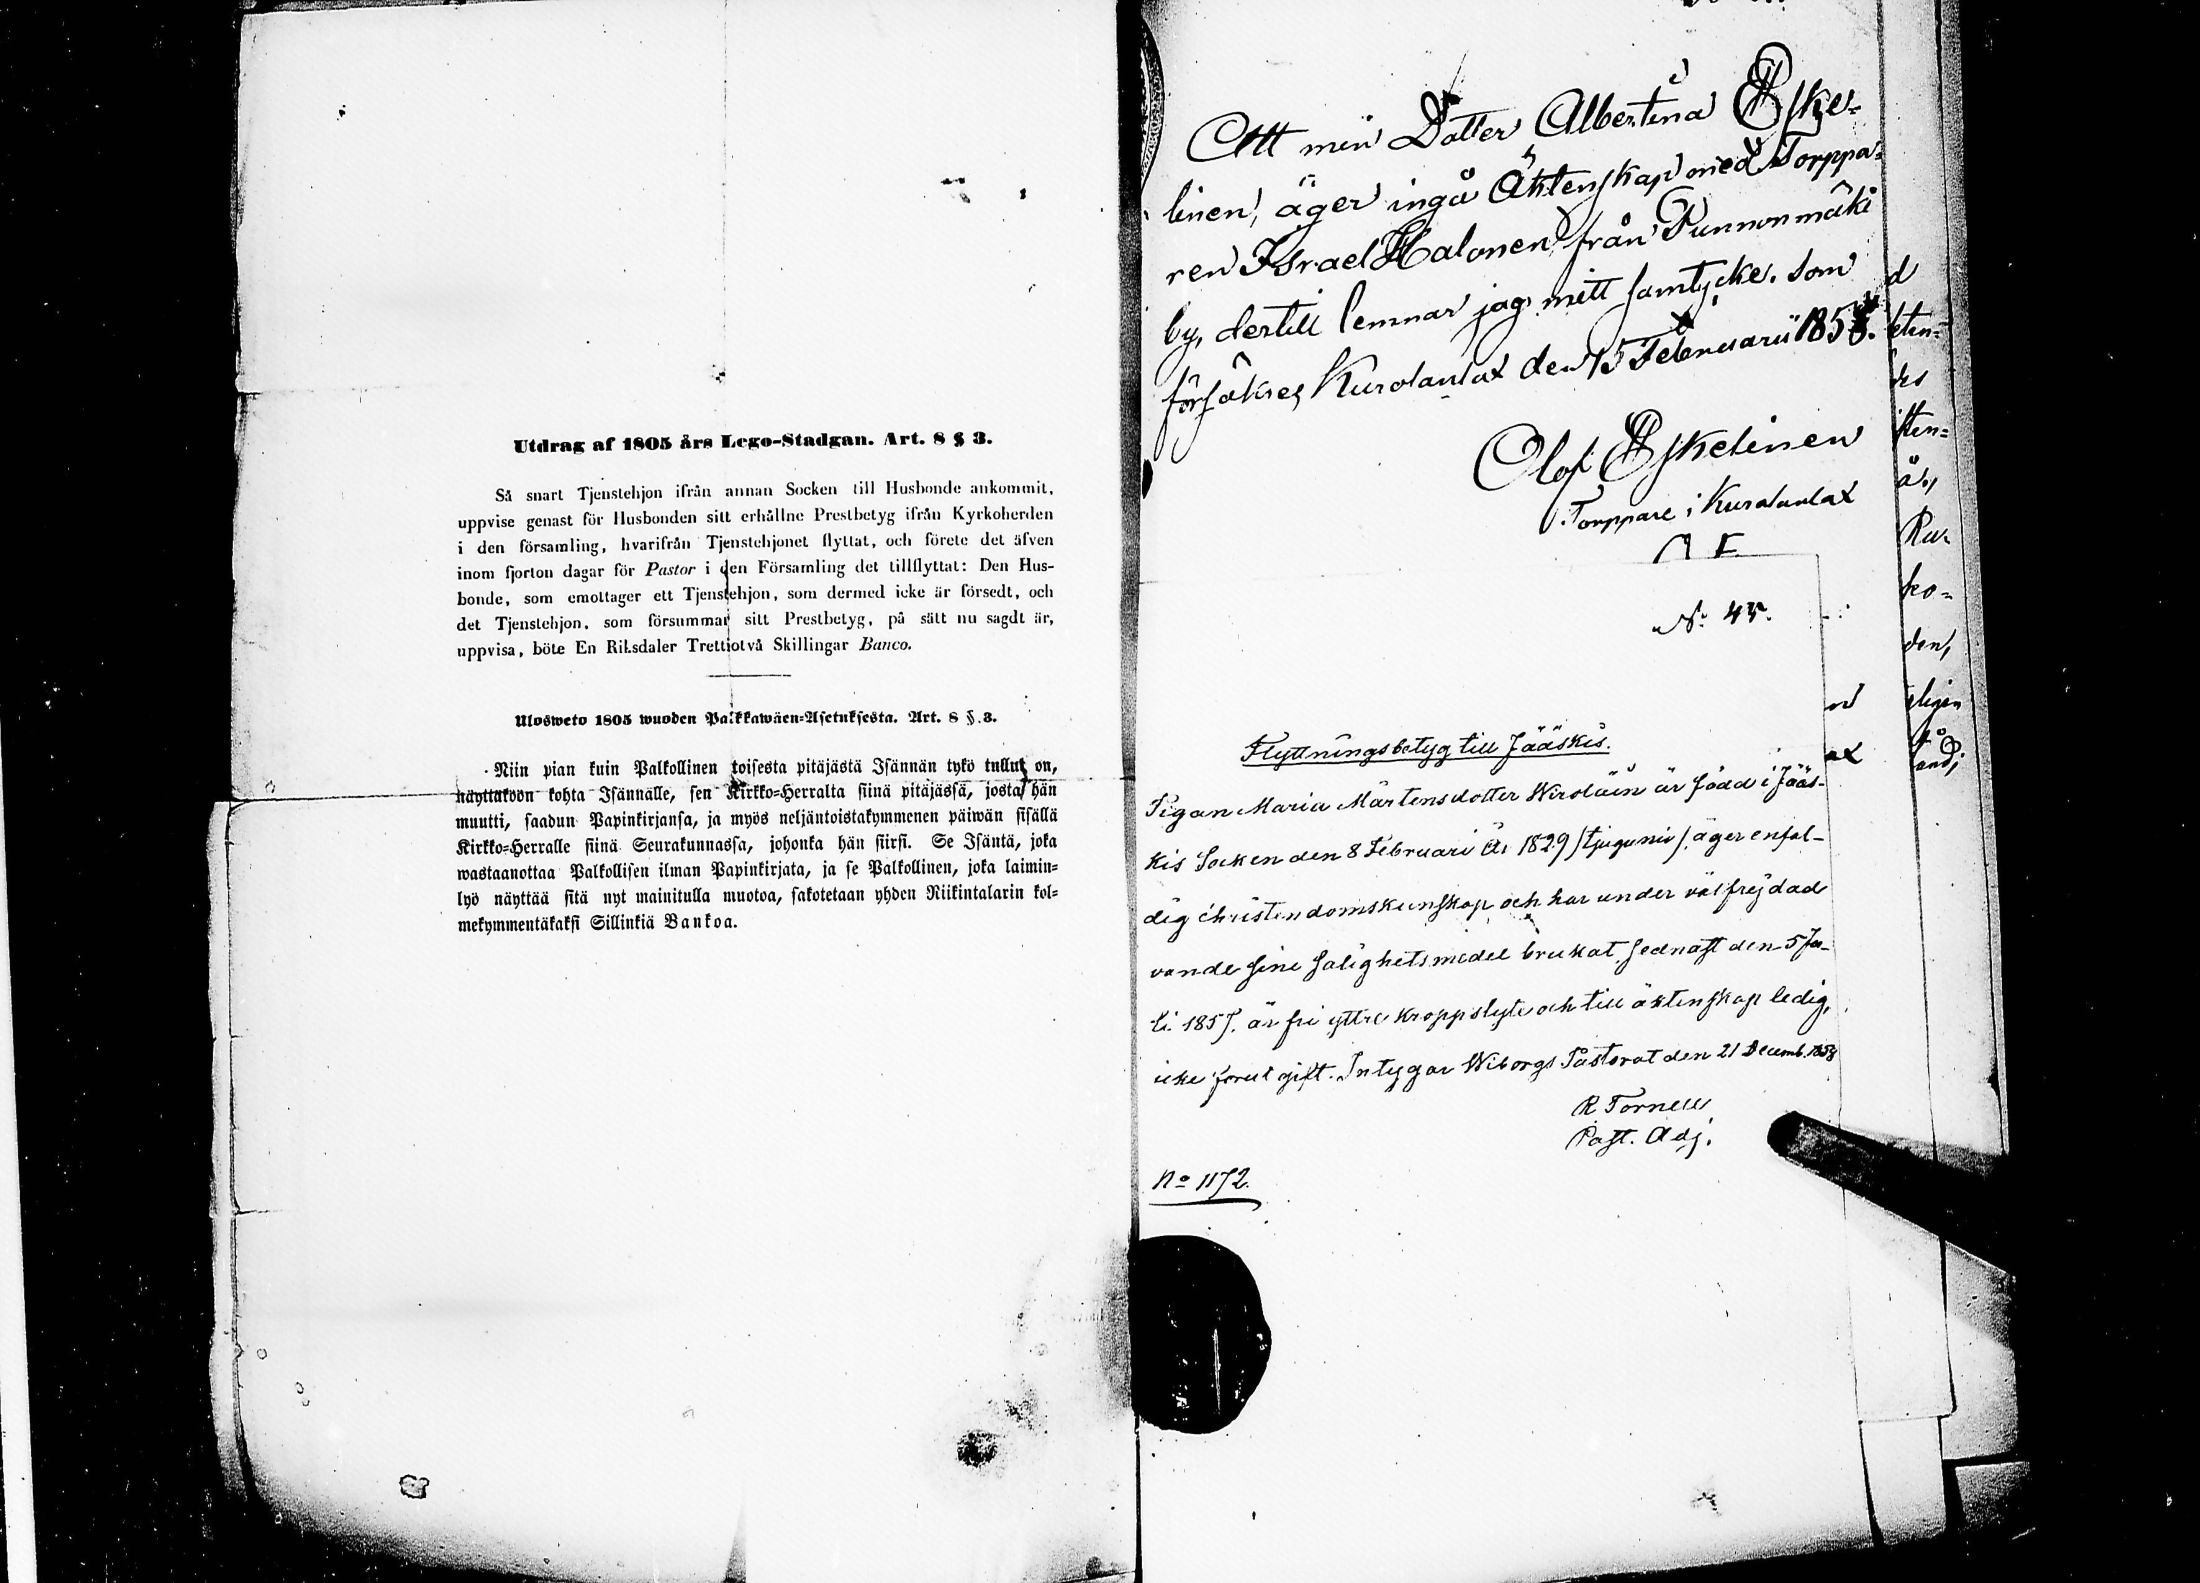 Utdrag af 1805 års Lego-Stadgan. Art. 8 § 3.
Så snart Tjenstehjon ifrån annan Socken till Husbonde ankommit,
uppvise genast för Husbonden sitt erhållne Prestbetyg ifrån Kyrkoherden
i den församling, hvarifrån Tjenstehjonet flyttat, och förete det äfven
inom fjorton dagar för Pastor i den Församling det tillflyttat: Den Hus-
bonde, som emottager ett Tjenstehjon, som dermed icke är försedt, och
det Tjenstehjon, som försummar sitt Prestbetyg, på sätt nu sagdt är,
uppvisa, böte En Riksdaler Trettiotvå Skillingar Banco.
Ulosweto 1805 wuoden Palkkawäen=Asetuksesta. Art. 8 §. 3.
Niin pian kuin Palkollinen toisesta pitäjästä Isännän tykö tullut on,
näyttäköön kohta Isännälle, sen Kirkko=Herralta siinä pitäjässä, josta hän
muutti, saadun Papinkirjansa, ja myös neljäntoistakymmenen päiwän sisällä
Kirkko=Herralle siinä Seurakunnassa, johonka hän siirsi. Se Isäntä, joka
wastaanottaa Palkollisen ilman Papinkirjata, ja se Palkollinen, joka laimin=
lyö näyttää sitä nyt mainitulla muotoa, sakotetaan yhden Riikintalarin kol=
mekymmentäkaksi Sillinkiä Bankoa.
Att min Dotter Albertina Eske-
linen, äger ingå Äktenskap med Torppa-
ren Israel Halonen från Punnonmäki
by, dertill lemnar jag mitt samtycke. som
försäkres, Kurolanlax den 15 Februarii 1858.
Olof Eskelinen
Torppare i Kurolanlax
No 45.
Flyttningsbetyg till Jääskis.
Pigan Maria Mårtensdotter Wiroläin är född i Jääs-
kis Socken den 8 Februari År 1829 /tjugunio/. äger enfal-
dig christendomskunskap och har under välfrejdad
vande sine salighetsmedel brukat, sednast den 5 Ju-
li 1857. är fri yttre kroppslyte och till äktenskap ledig,
icke förut gift. Intygar Wiborgs Pastorat den 21 Decemb. 1858
R Tornell
Past. Adj.
No 1172.
d
ko-
den,